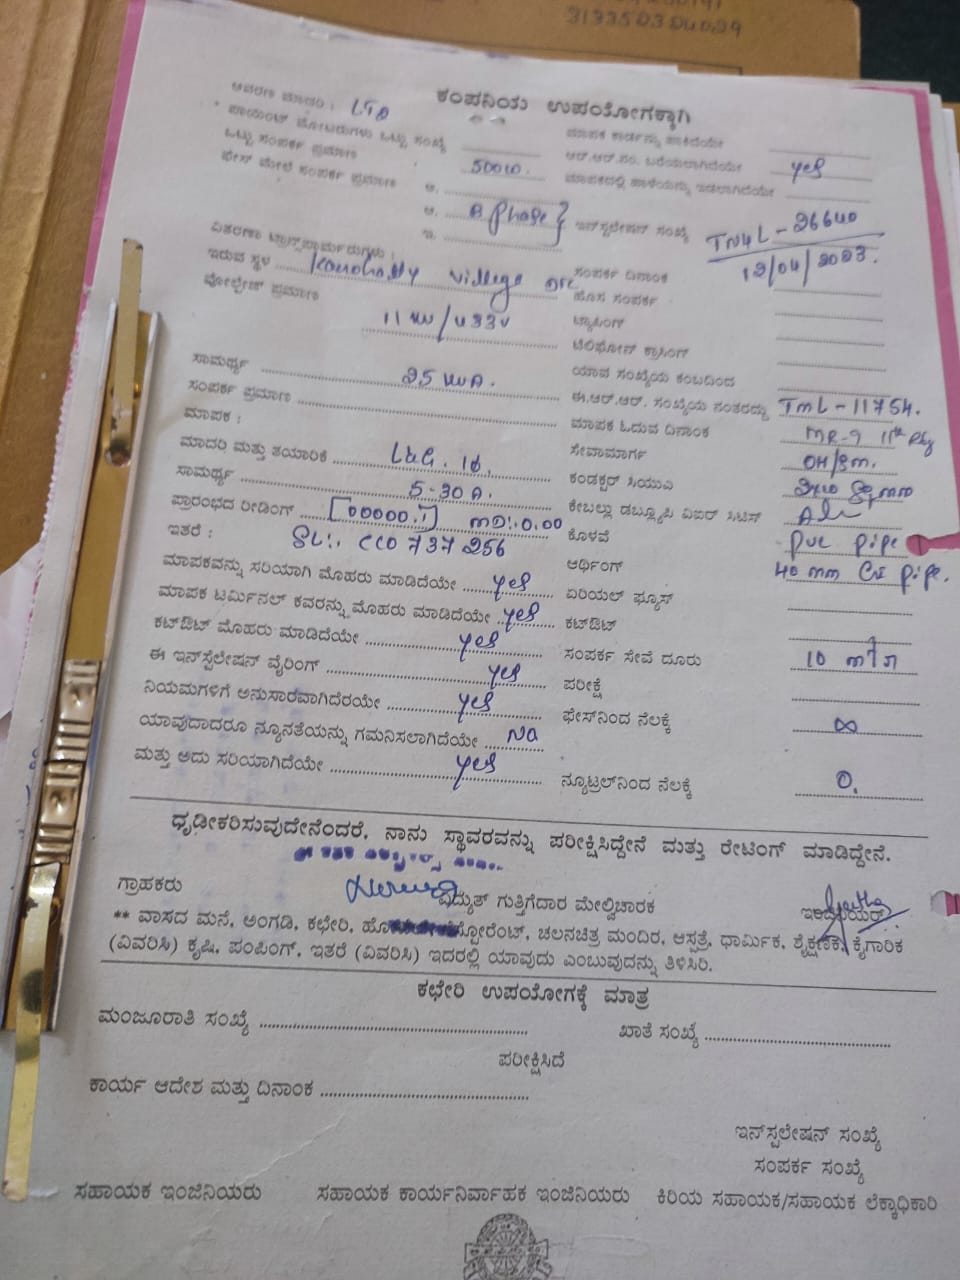 31335030409
ಕಂಪನಿಯ ಉಪಯೋಗಕ್ಕಾಗಿ
ಆವರಣ ಮಾದರಿ :
ಪಾಯಿಂಟ್ ಮೋಟರುಗಳು ಒಟ್ಟು ಸಂಖ್ಯೆ ಮಾಪಕ ಕಾರ್ಡನ್ನು ಹಾಕಿದೆಯೇ
ಒಟ್ಟು ಸಂಪರ್ಕ ಪ್ರಮಾಣ 500W. ಆರ್.ಆರ್.ನಂ. ಬರೆಯಲಾಗಿದೆಯೇ yes
ಫೇಸ್ ಮೇಲೆ ಸಂಪರ್ಕ ಪ್ರಮಾಣ ಅ. ಮಾಪಕದಲ್ಲಿ ಹಾಳೆಯನ್ನು ಇಡಲಾಗಿದೆಯೇ
ಆ. B phase } ಇನ್‌ಸ್ಟಲೇಷನ್ ಸಂಖ್ಯೆ TN4L-26640
ಇ. 12/04/2023.
ವಿತರಣಾ ಟ್ರಾನ್ಸ್‌ಫಾರ್ಮರುಗಳು :
ಇರುವ ಸ್ಥಳ village ಸಂಪರ್ಕ ದಿನಾಂಕ
ವೋಲ್ಟೇಜ್ ಪ್ರಮಾಣ ಹೊಸ ಸಂಪರ್ಕ
11 KV/433V ಟ್ಯಾಪಿಂಗ್
ಟೆಲಿಫೋನ್ ಕ್ರಾಸಿಂಗ್
ಸಾಮರ್ಥ್ಯ 25 KVA. ಯಾವ ಸಂಖ್ಯೆಯ ಕಂಬದಿಂದ
ಸಂಪರ್ಕ ಪ್ರಮಾಣ ಈ.ಆರ್.ಆರ್. ಸಂಖ್ಯೆಯ ನಂತರದ್ದು TML-11754.
ಮಾಪಕ : ಮಾಪಕ ಓದುವ ದಿನಾಂಕ MR-9
ಮಾದರಿ ಮತ್ತು ತಯಾರಿಕೆ L&G. ಸೇವಾಮಾರ್ಗ OH/
ಸಾಮರ್ಥ್ಯ 5-30A. ಕಂಡಕ್ಟರ್ ಸಿಯುವಿ
ಪ್ರಾರಂಭದ ರೀಡಿಂಗ್ 00000.1 MD:.0.00 ಕೇಬಲ್ಲು ಡಬ್ಲ್ಯೂಪಿ ವಿಐರ್ ಸಿಟಿಸ್
ಇತರೆ : SL:. CCO 737 256 ಕೊಳವೆ PVC pipe
ಅರ್ಥಿಂಗ್ 40 mm GI pipe.
ಮಾಪಕವನ್ನು ಸರಿಯಾಗಿ ಮೊಹರು ಮಾಡಿದೆಯೇ yes ಏರಿಯಲ್ ಫ್ಯೂಸ್
ಮಾಪಕ ಟರ್ಮಿನಲ್ ಕವರನ್ನು ಮೊಹರು ಮಾಡಿದೆಯೇ yes ಕಟ್‌ಔಟ್
ಕಟ್‌ಔಟ್ ಮೊಹರು ಮಾಡಿದೆಯೇ yes ಸಂಪರ್ಕ ಸೇವೆ ದೂರು 10
ಈ ಇನ್‌ಸ್ಟಲೇಷನ್ ವೈರಿಂಗ್ yes ಪರೀಕ್ಷೆ
ನಿಯಮಗಳಿಗೆ ಅನುಸಾರವಾಗಿದೆರಯೇ yes ಫೇಸ್‌ನಿಂದ ನೆಲಕ್ಕೆ ∞
ಯಾವುದಾದರೂ ನ್ಯೂನತೆಯನ್ನು ಗಮನಿಸಲಾಗಿದೆಯೇ No
ಮತ್ತು ಅದು ಸರಿಯಾಗಿದೆಯೇ yes ನ್ಯೂಟ್ರಲ್‌ನಿಂದ ನೆಲಕ್ಕೆ 0.
ಧೃಢೀಕರಿಸುವುದೇನೆಂದರೆ, ನಾನು ಸ್ಥಾವರವನ್ನು ಪರೀಕ್ಷಿಸಿದ್ದೇನೆ ಮತ್ತು ರೇಟಿಂಗ್ ಮಾಡಿದ್ದೇನೆ.
ಗ್ರಾಹಕರು ವಿದ್ಯುತ್ ಗುತ್ತಿಗೆದಾರ ಮೇಲ್ವಿಚಾರಕ ಇಂಜಿನಿಯರ್
** ವಾಸದ ಮನೆ, ಅಂಗಡಿ, ಕಛೇರಿ, ಚಲನಚಿತ್ರ ಮಂದಿರ, ಆಸ್ಪತ್ರೆ, ಧಾರ್ಮಿಕ, ಶೈಕ್ಷಣಿಕ, ಕೈಗಾರಿಕ
(ವಿವರಿಸಿ) ಕೃಷಿ, ಪಂಪಿಂಗ್, ಇತರೆ (ವಿವರಿಸಿ) ಇದರಲ್ಲಿ ಯಾವುದು ಎಂಬುವುದನ್ನು ತಿಳಿಸಿರಿ.
ಕಛೇರಿ ಉಪಯೋಗಕ್ಕೆ ಮಾತ್ರ
ಮಂಜೂರಾತಿ ಸಂಖ್ಯೆ ಖಾತೆ ಸಂಖ್ಯೆ
ಪರೀಕ್ಷಿಸಿದೆ
ಕಾರ್ಯ ಆದೇಶ ಮತ್ತು ದಿನಾಂಕ
ಇನ್‌ಸ್ಟಲೇಷನ್ ಸಂಖ್ಯೆ
ಸಂಪರ್ಕ ಸಂಖ್ಯೆ
ಸಹಾಯಕ ಇಂಜಿನಿಯರು ಸಹಾಯಕ ಕಾರ್ಯನಿರ್ವಾಹಕ ಇಂಜಿನಿಯರು ಕಿರಿಯ ಸಹಾಯಕ/ಸಹಾಯಕ ಲೆಕ್ಕಾಧಿಕಾರಿ